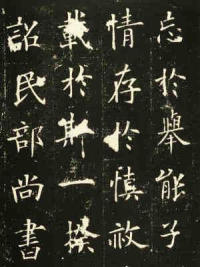 忘於舉能子
情存於慎赦
載於斯一揆
詔民部尚書